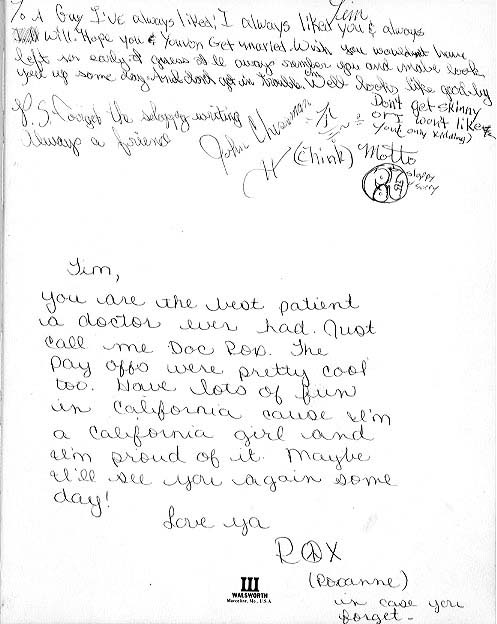 To A Guy I've always liked; I always liked you & always
Tim
will. Hope you & Youvon Get married. Wish you wouldnt have
left so early. I guess I'll always you and make look
you up some day. And dont get in trouble. Well looks like goodby
P.S. Forget the sloppy writing
Always a friend
John
(chink)
Don't get skinny
or I won't like
you (only kidding)
Motto
sloppy
sorry
Tim,
you are the best patient
a doctor ever had. Just
call me Doc Rox. The
pay offs were pretty cool
too. Have lots of fun
in California cause I'm
a California girl and
I'm proud of it. Maybe
I'll see you again some
day!
Love ya
ROX
(Roxanne)
in case you
forget -
WALSWORTH
Marceline, Mo., U.S.A.